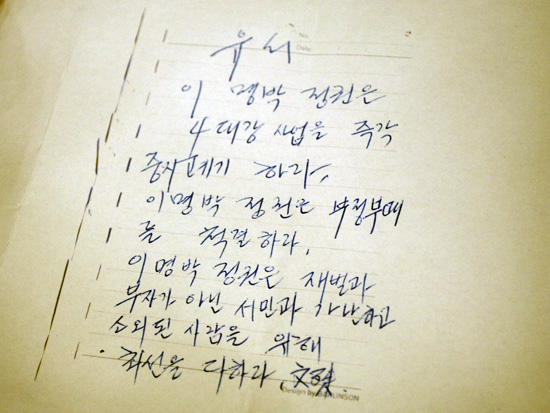 유서
No.
Date
이 명박 정권은
4대강 사업을 즉각
중지폐기 하라.
이명박 정권은 부정부패
를 척결하라.
이명박 정권은 재벌과
부자가 아닌 서민과 가난하고
소외된 사람을 위해
최선을 다하라. 文殊.
Design by